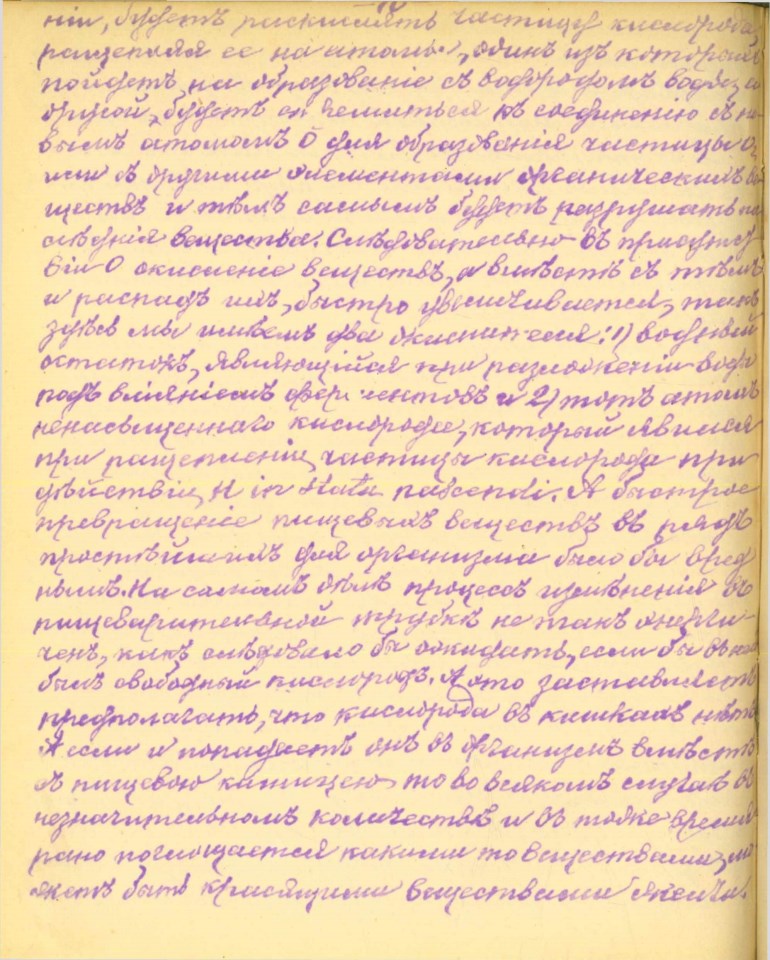 ніи, будетъ раскислять частицу кислорода,
ращепляя ее на атомы, одинъ изъ которыхъ
пойдетъ на образованіе съ водородомъ воды, а
другой, будетъ стремиться къ соединенію съ но-
вымъ атомомъ О для образованія частицы О₂
или съ другими элементами органическихъ ве-
ществъ и тѣмъ самымъ будетъ разрушать по-
слѣднія вещества. Слѣдовательно въ присутст-
віи О окисленіе веществъ, а вмѣстѣ съ тѣмъ
и распадъ ихъ, быстро увеличивается, такъ
здѣсь мы имѣемъ два окислителя: 1) водный
остатокъ, являющійся при разложеніи воды
подъ вліяніемъ ферментовъ и 2) тотъ атомъ
ненасыщеннаго кислорода, который явился
при ращепленіи частицы кислорода при
дѣйствіи H in statu nascendi. А быстрое
превращеніе пищевыхъ веществъ въ рядъ
простѣйшихъ для организма было бы вред
нымъ. На самомъ дѣлѣ процессъ измѣненія въ
пищеварительной трубкѣ не такъ энерги-
ченъ, какъ слѣдовало бы ожидать, если бы въ ней
былъ свободный кислородъ. А это заставляетъ
предполагать, что кислорода въ кишкахъ нѣтъ
А если и попадаетъ онъ въ организмъ вмѣстѣ
съ пищевою кашицею то во всякомъ случаѣ въ
незначительномъ количествѣ и въ тоже время
рано поглощается какими то веществами, мо-
жетъ быть красящими веществами желчи.